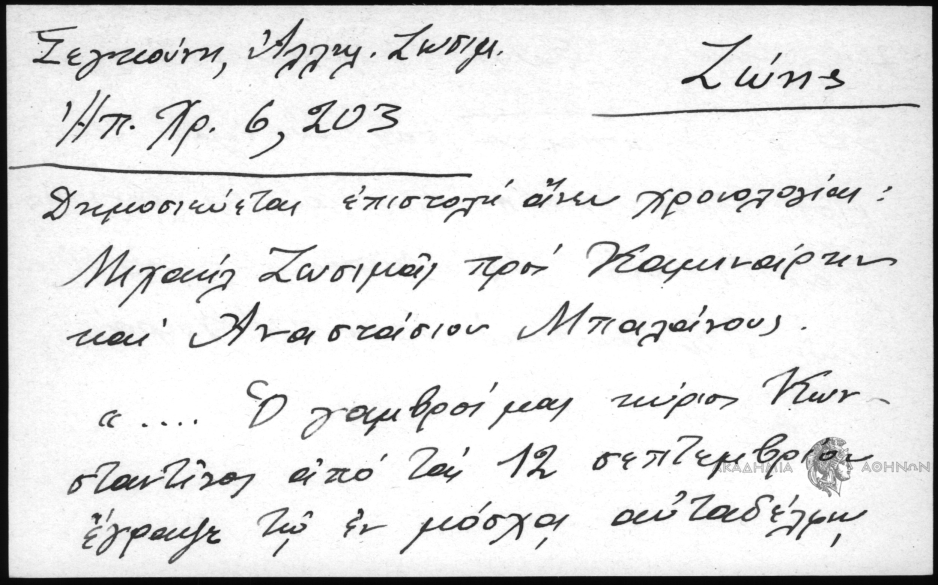 Σεγκούνη, Ἀλληλ. Ζωσιμ.
Ζώης
Ἠπ. Χρ. 6, 203
Δημοσιεύεται ἐπιστολή ἄνευ χρονολογίας :
Μιχαήλ Ζωσιμᾶς πρός Καμινάρην
καί Ἀναστάσιον Μπαλάνους.
“ .... Ὁ γαμβρός μας κύριος Κων-
σταντῖνος ἀπό τάς 12 σεπτεμβρίου
ἔγραψε τῷ ἐν μόσχᾳ αὐταδέλφῳ
ΑΚΑΔΗΜΙΑ ΑΘΗΝΩΝ